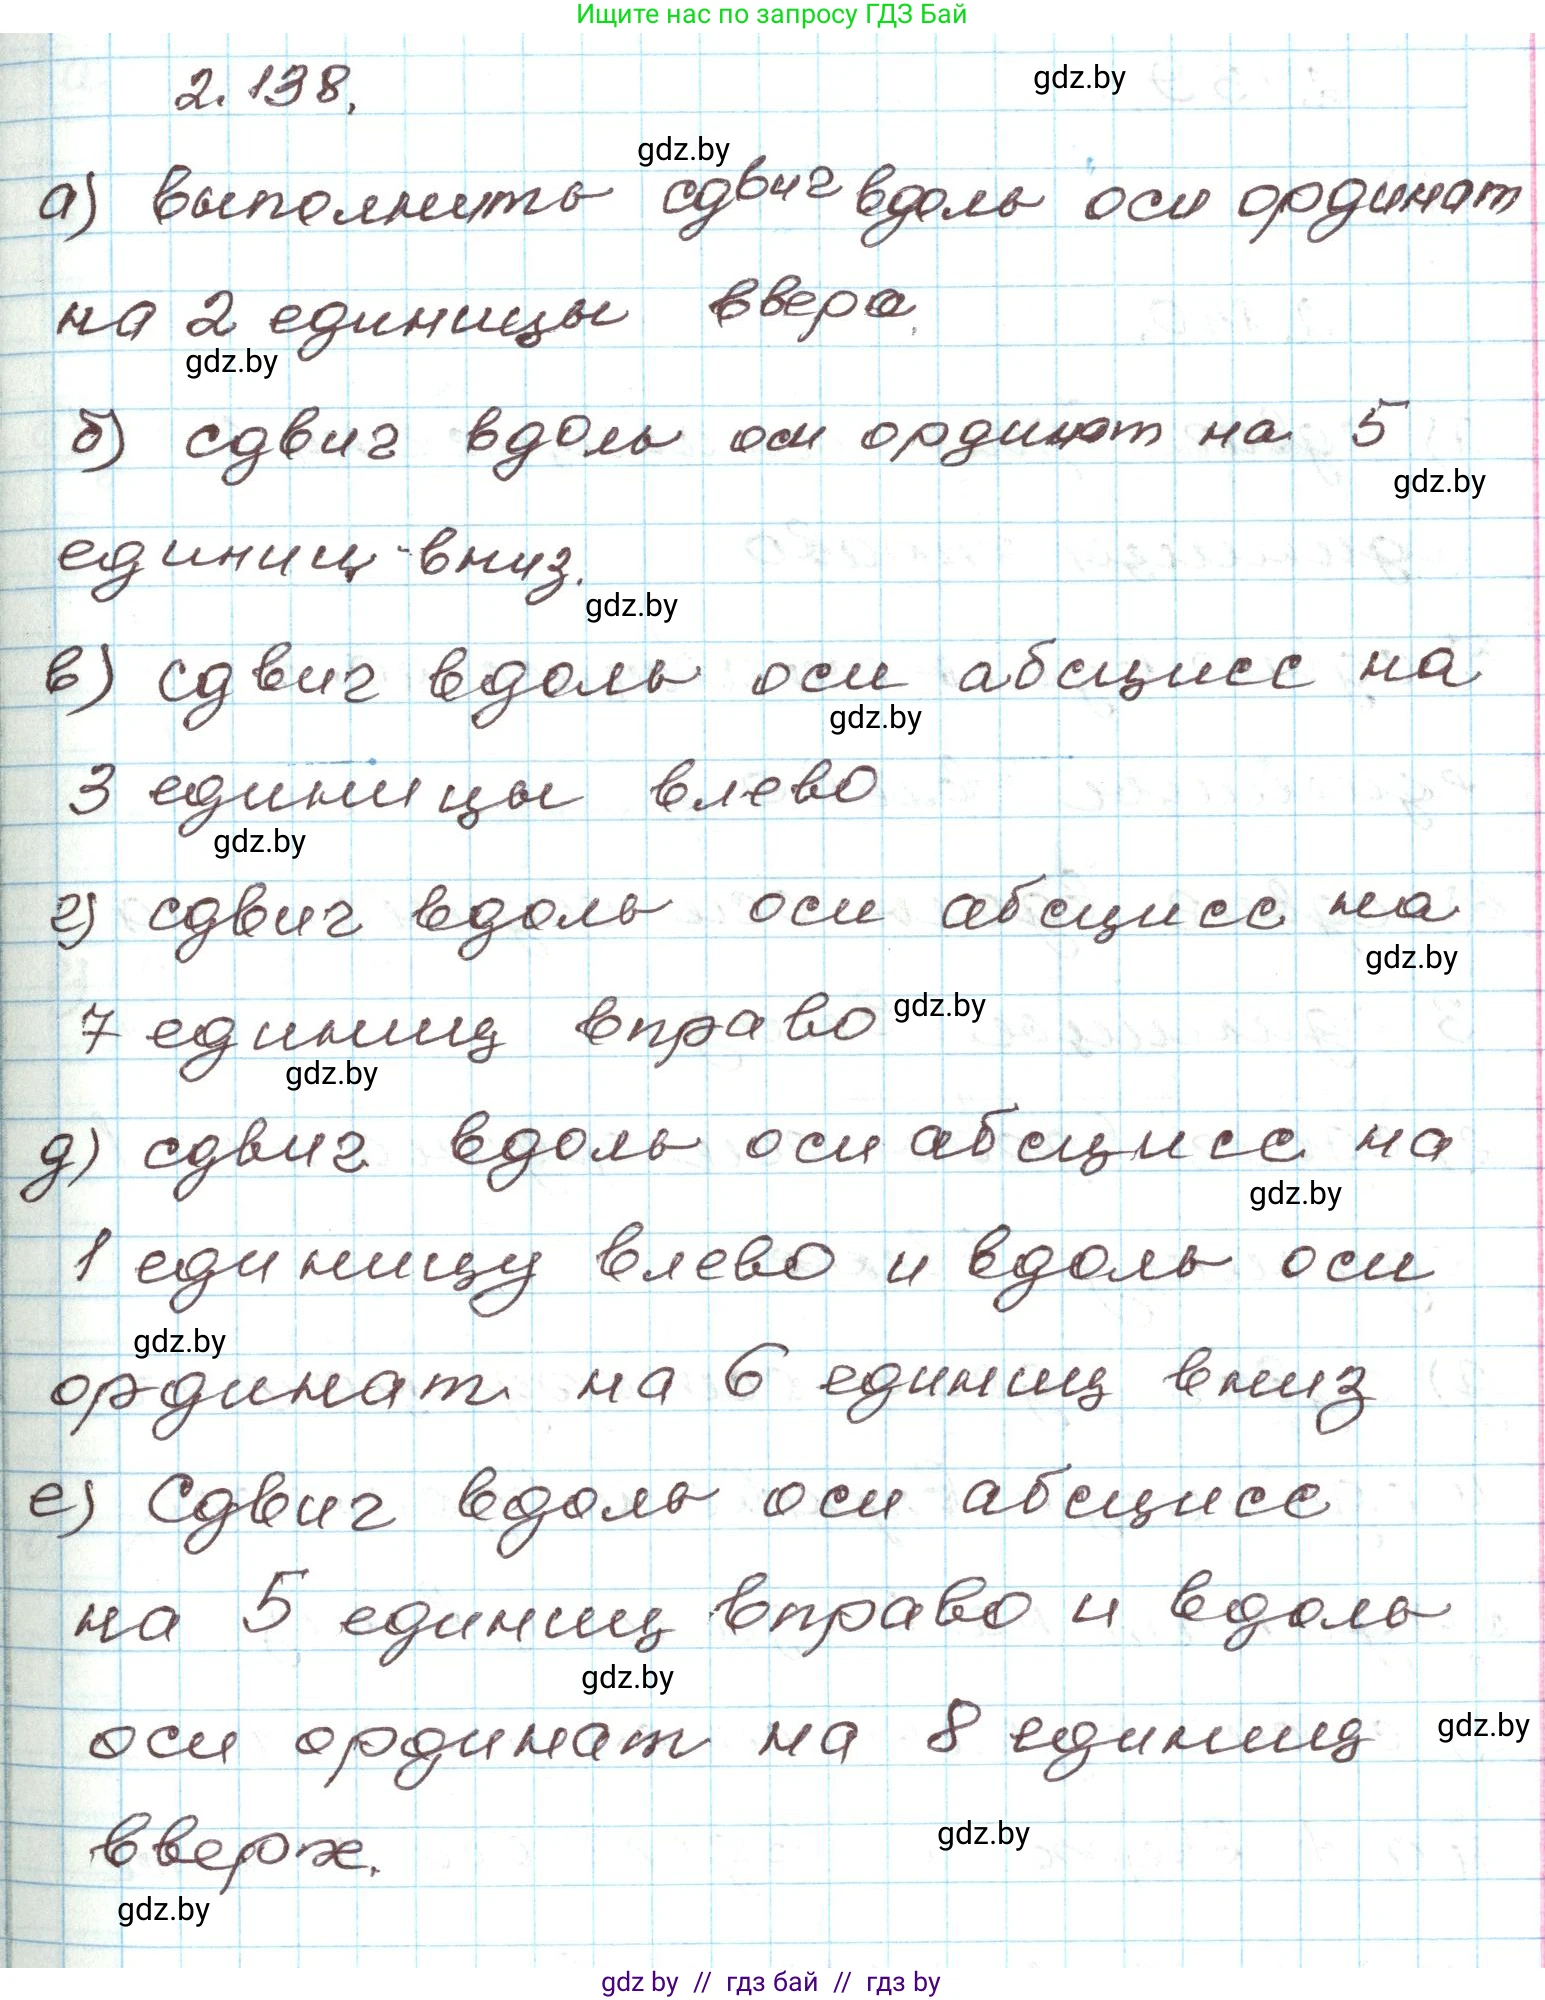 Ищите нас по запросу ГДЗ Бай
2.138.
gdz.by
gdz.by
а) выполнить сдвиг вдоль оси ординат
на 2 единицы вверх
gdz.by
б) сдвиг вдоль оси ординат на 5
gdz.by
единиц вниз.
gdz.by
в) сдвиг вдоль оси абсцисс на
gdz.by
3 единицы влево
gdz.by
г) сдвиг вдоль оси абсцисс на
gdz.by
7 единиц вправо gdz.by
gdz.by
д) сдвиг вдоль оси абсцисс на
gdz.by
1 единицу влево и вдоль оси
gdz.by
ординат на 6 единиц вниз
е) Сдвиг вдоль оси абсцисс
на 5 единиц вправо и вдоль
gdz.by
оси ординат на 8 единиц gdz.by
вверх.
gdz.by
gdz.by
gdz by // гдз бай // гдз by